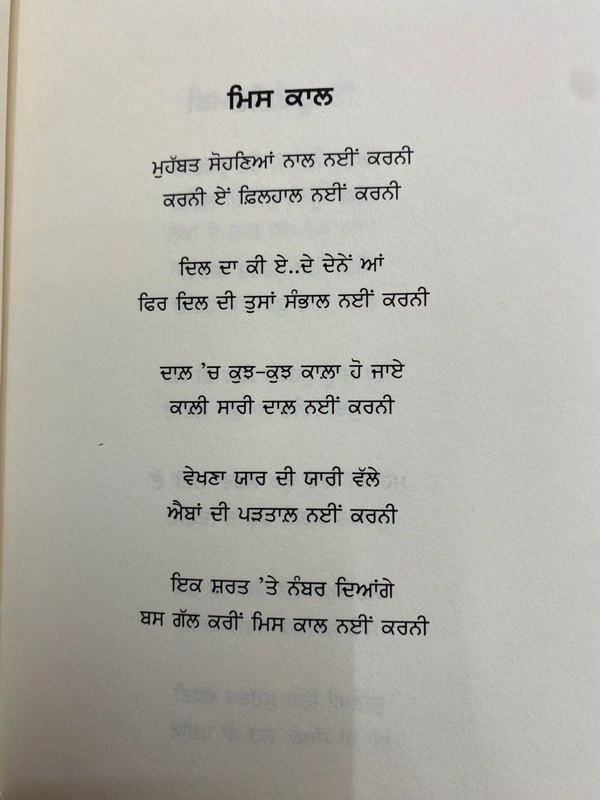 ਮਿਸ ਕਾਲ
ਮੁਹੱਬਤ ਸੋਹਣਿਆਂ ਨਾਲ ਨਈਂ ਕਰਨੀ
ਕਰਨੀ ਏਂ ਫ਼ਿਲਹਾਲ ਨਈਂ ਕਰਨੀ
ਦਿਲ ਦਾ ਕੀ ਏ..ਦੇ ਦੇਨੇਂ ਆਂ
ਫਿਰ ਦਿਲ ਦੀ ਤੁਸਾਂ ਸੰਭਾਲ ਨਈਂ ਕਰਨੀ
ਦਾਲ਼ ’ਚ ਕੁਝ-ਕੁਝ ਕਾਲ਼ਾ ਹੋ ਜਾਏ
ਕਾਲ਼ੀ ਸਾਰੀ ਦਾਲ਼ ਨਈਂ ਕਰਨੀ
ਵੇਖਣਾ ਯਾਰ ਦੀ ਯਾਰੀ ਵੱਲੇ
ਐਬਾਂ ਦੀ ਪੜਤਾਲ਼ ਨਈਂ ਕਰਨੀ
ਇਕ ਸ਼ਰਤ ’ਤੇ ਨੰਬਰ ਦਿਆਂਗੇ
ਬਸ ਗੱਲ ਕਰੀਂ ਮਿਸ ਕਾਲ ਨਈਂ ਕਰਨੀ